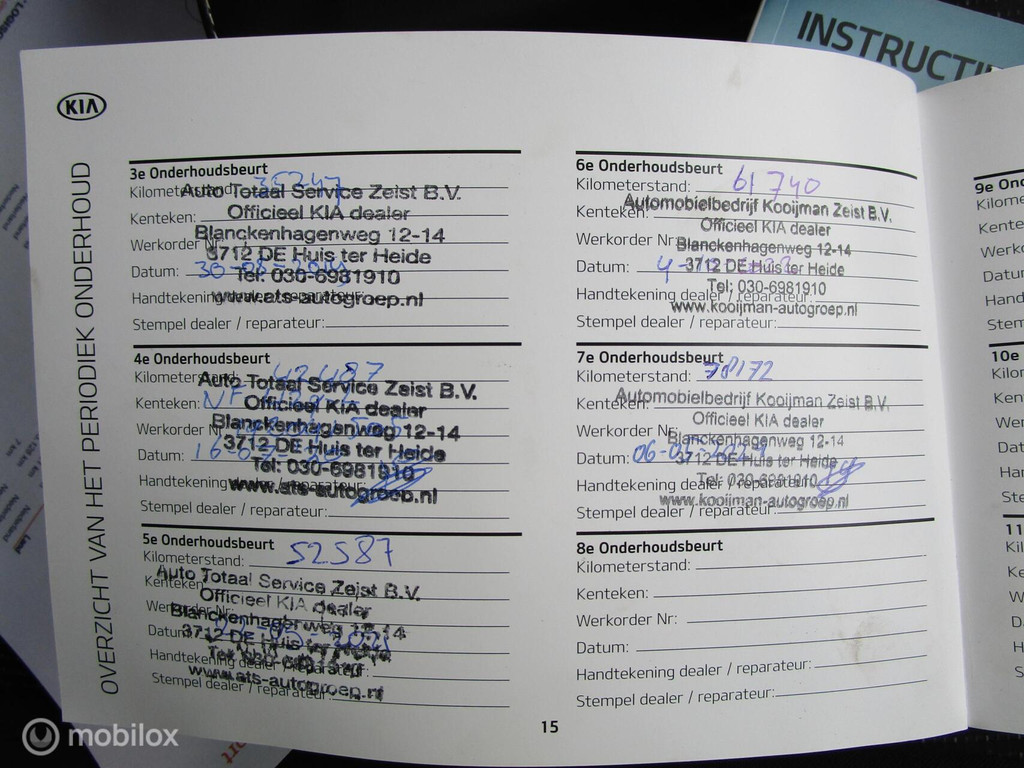 INSTRUCTI
KIA
OVERZICHT VAN HET PERIODIEK ONDERHOUD
3e Onderhoudsbeurt
Kilometerstand: 35247
Auto Totaal Service Zeist B.V.
Kenteken:
Officieel KIA dealer
Werkorder Nr:
Blanckenhagenweg 12-14
3712 DE Huis ter Heide
Datum: 30-08-2019
Tel: 030-6981910
Handtekening dealer / reparateur:
www.ats-autogroep.nl
Stempel dealer / reparateur:
4e Onderhoudsbeurt
Kilometerstand: 42487
Auto Totaal Service Zeist B.V.
Kenteken:
Officieel KIA dealer
Werkorder Nr
Blanckenhagenweg 12-14
3712 DE Huis ter Heide
Datum: 16-07-
Tel: 030-6981910
Handtekening dealer / reparateur:
www.ats-autogroep.nl
Stempel dealer / reparateur:
5e Onderhoudsbeurt
Kilometerstand: 52587
Auto Totaal Service Zeist B.V.
Kenteken
Officieel KIA dealer
Werkorder Nr:
Blanckenhagenweg 12-14
Datum
3712 DE Huis ter Heide
Handtekening dealer / reparateur:
www.ats-autogroep.nl
Stempel dealer / reparateur:
6e Onderhoudsbeurt
Kilometerstand: 61740
Automobielbedrijf Kooijman Zeist B.V.
Kenteken:
Officieel KIA dealer
Werkorder Nr:
Blanckenhagenweg 12-14
Datum: 4-
3712 DE Huis ter Heide
Tel: 030-6981910
Handtekening dealer / reparateur:
www.kooijman-autogroep.nl
Stempel dealer / reparateur:
7e Onderhoudsbeurt
Kilometerstand: 78172
Automobielbedrijf Kooijman Zeist B.V.
Kenteken:
Officieel KIA dealer
Werkorder Nr:
Blanckenhagenweg 12-14
Datum: 06-
3712 DE Huis ter Heide
Tel: 030-6981910
Handtekening dealer / reparateur:
www.kooijman-autogroep.nl
Stempel dealer / reparateur:
8e Onderhoudsbeurt
Kilometerstand:
Kenteken:
Werkorder Nr:
Datum:
Handtekening dealer / reparateur:
Stempel dealer / reparateur:
15
9e Ond
Kilome
Kente
Werko
Datur
Hand
Stem
10e
Kilor
Ken
Wer
Dat
Har
Ste
11
Kil
Ke
W
D
H
S
mobilox